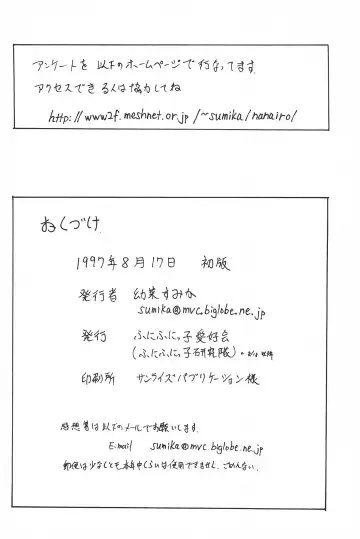 アンケートを 以下のホームページで行なってます.
アクセスできる人は協力してね
http://www2f.meshnet.or.jp/~sumika/nanairo/
おくづけ
1997年8月17日 初版
発行者 幼菜すみか
sumika@mvc.biglobe.ne.jp
発行 ふにふにっ子愛好会
(ふにふにっ子研究隊)
印刷所 サンライズパブリケーション様
感想等は以下のメールでお願いします.
E-mail sumika@mvc.biglobe.ne.jp
郵便は少なくとも本年中くらいは使用できません. ごめんない.